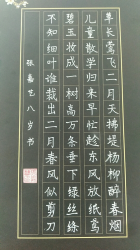 草长莺飞二月天拂堤杨柳醉春烟
儿童散学归来早忙趁东风放纸鸢
碧玉妆成一树高万条垂下绿丝绦
不知细叶谁裁出二月春风似剪刀
张嘉艺八岁书